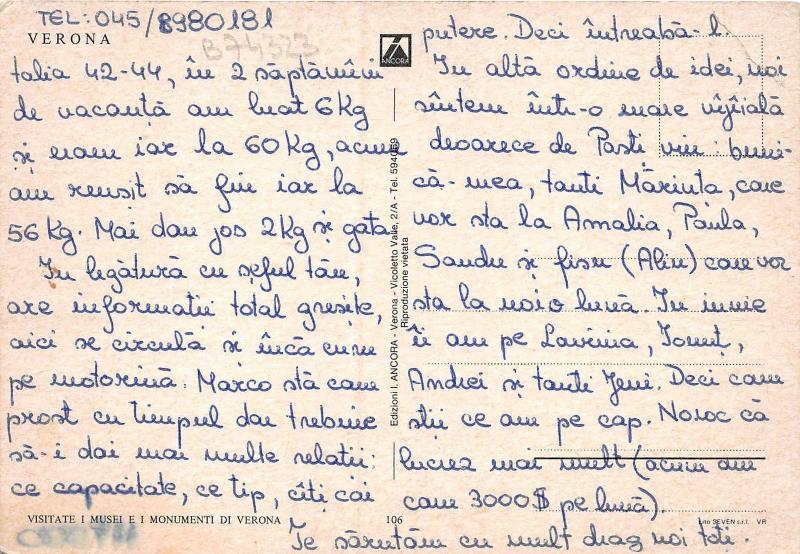 TEL: 045/8980181
VERONA
B74323
talia 42-44, în 2 săptămîni
de vacanță am luat 6 Kg
și eram iar la 60 Kg, acum
am reușit să fiu iar la
56 Kg. Mai dau jos 2 Kg și gata
În legătură cu șeful tău,
are informații total greșite,
aici se circulă și încă cum
pe motorină. Marco stă cam
prost cu timpul dar trebuie
să-i dai mai multe relații:
ce capacitate, ce tip, cîți cai
VISITATE I MUSEI E I MONUMENTI DI VERONA
ANCORA
Edizioni I. ANCORA - Verona - Vicoletto Valle, 2/A - Tel. 594059
Riproduzione vietata
106
putere. Deci întreabă-l.
În altă ordine de idei, noi
sîntem într-o mare vîjîială
deoarece de Paști vin: buni-
că-mea, tanti Măriuța, care
vor sta la Amalia, Paula,
Sandu și fisu (Alin) care vor
sta la noi o lună. În iunie
îi am pe Lavinia, Ionuț,
Andrei și tanti Jeni. Deci cam
știi ce am pe cap. Noroc că
lucrez mai mult (acum am
cam 3000$ pe lună).
Lito SEVEN s.r.l. VR
Te sărutăm cu mult drag noi toți.